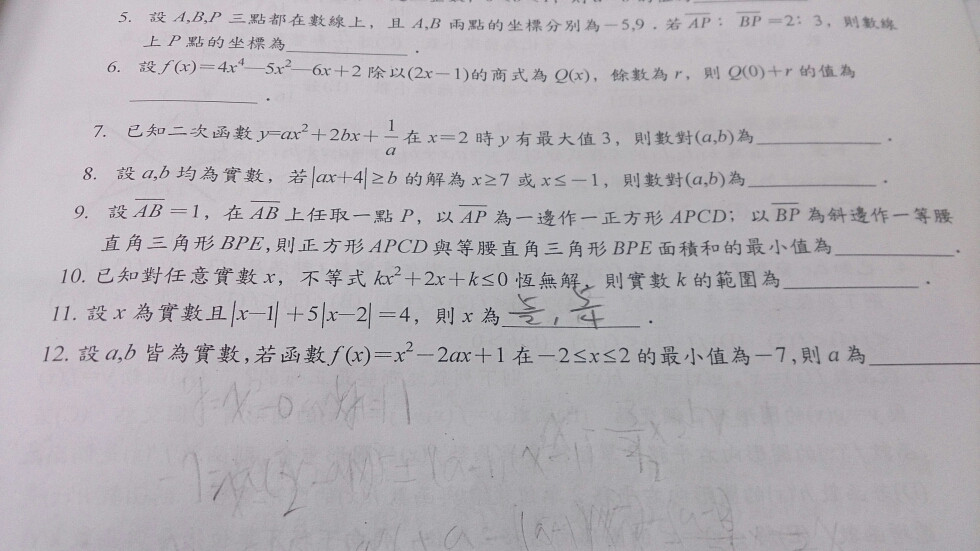 5. 設 A,B,P 三點都在數線上，且 A,B 兩點的坐標分別為－5,9．若 AP：BP＝2：3，則數線
上 P 點的坐標為＿＿＿＿＿＿．
6. 設 f(x)＝4x⁴—5x²—6x＋2 除以(2x－1)的商式為 Q(x)，餘數為 r，則 Q(0)＋r 的值為
＿＿＿＿＿＿．
7. 已知二次函數 y=ax²＋2bx＋1/a 在 x＝2 時 y 有最大值 3，則數對(a,b)為＿＿＿＿＿＿．
8. 設 a,b 均為實數，若|ax+4|≥b 的解為 x≥7 或 x≤－1，則數對(a,b)為＿＿＿＿＿＿．
9. 設 AB＝1，在 AB 上任取一點 P，以 AP 為一邊作一正方形 APCD；以 BP 為斜邊作一等腰
直角三角形 BPE,則正方形 APCD 與等腰直角三角形 BPE 面積和的最小值為＿＿＿＿＿＿．
10. 已知對任意實數 x，不等式 kx²＋2x＋k≤0 恆無解，則實數 k 的範圍為＿＿＿＿＿＿．
11. 設 x 為實數且|x—1|＋5|x—2|＝4，則 x 為 5/2 , 5/4．
12. 設 a,b 皆為實數,若函數 f(x)＝x²－2ax＋1 在－2≤x≤2 的最小值為－7,則 a 為＿＿＿＿＿＿